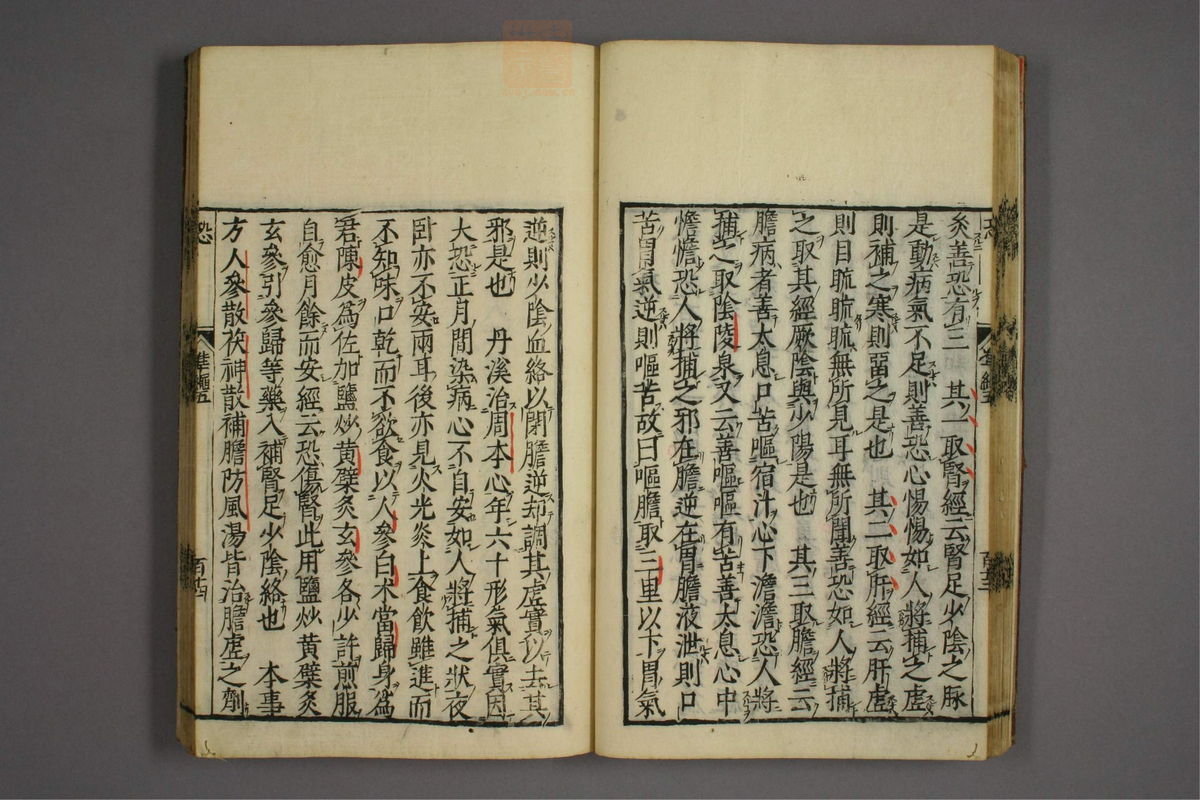 灸善恐有三　其一取腎經云腎足少陰之脉
是動病氣不足則善恐心惕惕如人將捕之虛
則補之寒則畱之是也　其二取肝經云肝虛
則目䀮䀮無所見耳無所聞善恐如人將捕
之取其經厥陰與少陽是也　其三取膽經云
膽病者善太息口苦嘔宿汁心下澹澹恐人將
捕之取陰陵泉又云善嘔嘔有苦善太息心中
憺憺恐人將捕之邪在膽逆在胃膽液泄則口
苦胃氣逆則嘔苦故曰嘔膽取三里以下胃氣
逆則少陰血絡以閉膽逆却調其虛實以去其
邪是也　丹溪治周本心年六十形氣俱實因
大恐正月間染病心不自安如人將捕之狀夜
卧亦不安兩耳後亦見火光炎上食飲雖進而
不知味口乾而不欲食以人參白朮當歸身爲
君陳皮爲佐加鹽炒黄檗炙玄參各少許煎服
自愈月餘而安經云恐傷腎此用鹽炒黄檗炙
玄參引參歸等藥入補腎足少陰絡也　本事
方人參散茯神散補膽防風湯皆治膽虛之劑
恐
準繩五